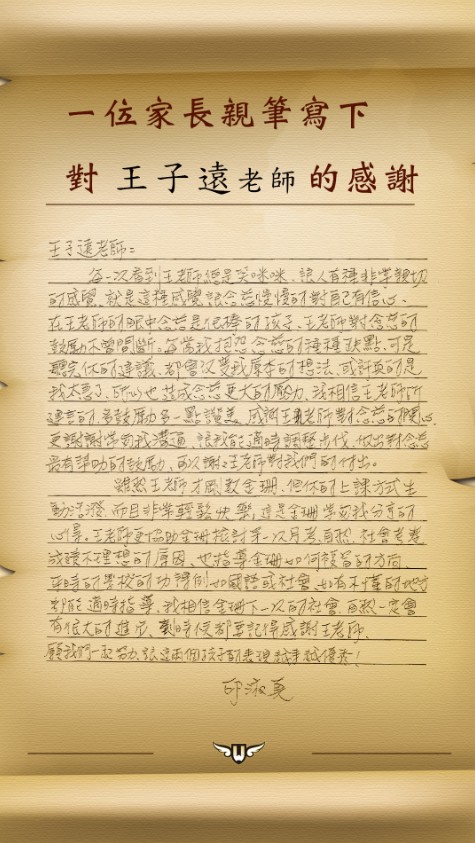 一位家長親筆寫下
對 王子遠老師 的感謝
王子遠老師：
每一次看到王老師總是笑咪咪、讓人有種非常親切
的感覺、就是這種感覺讓念慈慢慢的對自己有信心、
在王老師的眼中念慈是很棒的孩子、王老師對念慈的
鼓勵不曾間斷。每當我抱怨念慈的種種缺點、可是
聽完你的建議、都會改變我原本的想法、或許真的是
我太急了、所以也造成念慈更大的壓力、我相信王老師所
建言的、多鼓勵多一點讚美、感謝王老師對念慈的關心、
更謝謝常和我溝通、讓我能適時調整步伐、做出對念慈
最有幫助的鼓勵、再次謝謝王老師對我們的付出。
雖然王老師才剛教金珊、但你的上課方式生
動活潑、而且非常輕鬆快樂、這是金珊學習我分享的
心得。王老師更協助金珊檢討第一次月考、自然、社會考卷
成績不理想的原因、也指導金珊如何複習的方向、
平時的學校的功課例如國語或社會、如有不懂的地方
都能適時指導、我相信金珊下一次的社會、自然一定會
有很大的進步、到時候都要記得感謝王老師、
願我們一起努力、讓這兩個孩子的表現越來越優秀！
邱淑夏
W